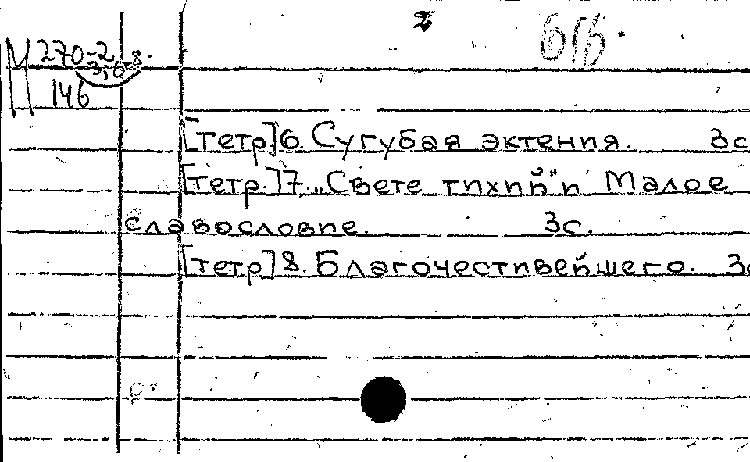 2
М 270-2
3,6-8.
146
[тетр]6. Сугубая эктения. 3с
[тетр.]7. „Свете тихий" и Малое
славословие. 3с.
[тетр]8. Благочестивейшего. 3с